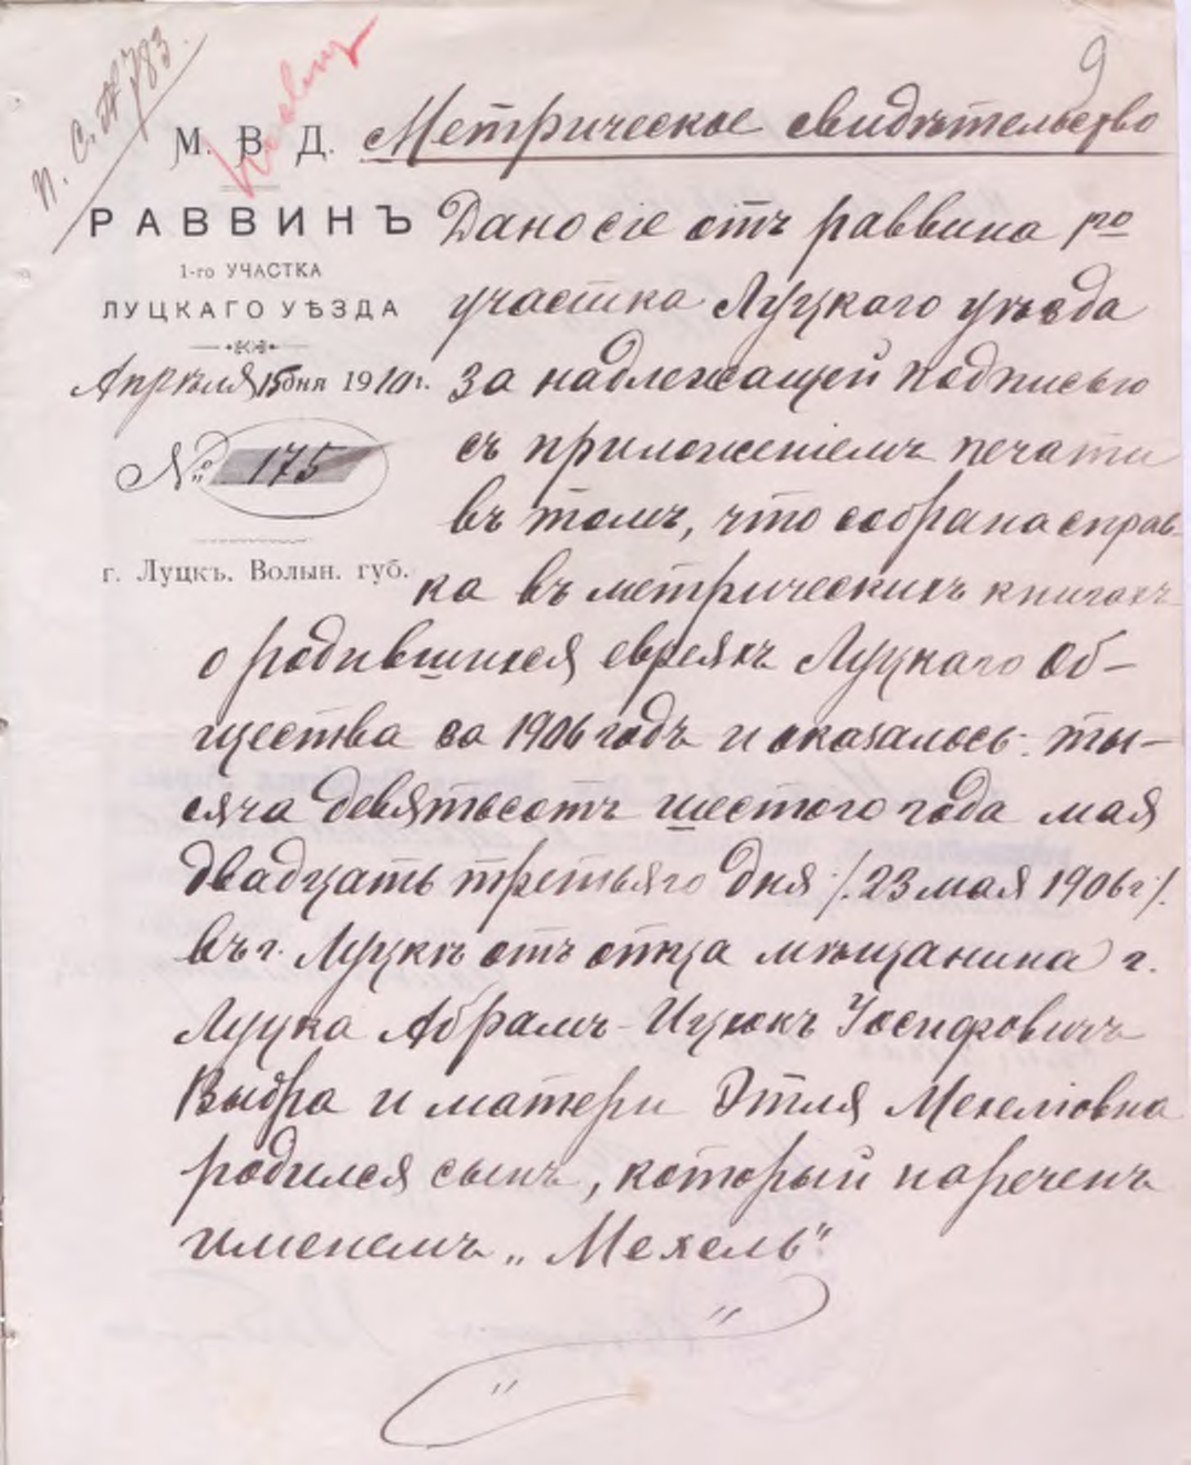 п. с. № 783.
9
М. В. Д.
РАВВИНЪ
1-го УЧАСТКА
ЛУЦКАГО УѢЗДА
Апрѣля 15 дня 1910 г.
№ 175
г. Луцкъ. Волын. губ.
Метрическое свидѣтельство
Дано сіе отъ раввина 1го
участка Луцкаго уѣзда
за надлежащей подписью
съ приложеніемъ печати
въ томъ, что собрана справ-
ка въ метрическихъ книгахъ
о родившихся евреяхъ Луцкаго Об-
щества за 1906 годъ и оказалось: ты-
сяча девятьсотъ шестого года мая
двадцать третьяго дня /. 23 мая 1906 г /.
въ г. Луцкѣ отъ отца мѣщанина г.
Луцка Абрамъ-Ицкокъ Іосифовичъ
Выдра и матери Этля Мехелювна
родился сынъ, который нареченъ
именемъ „Мехель"